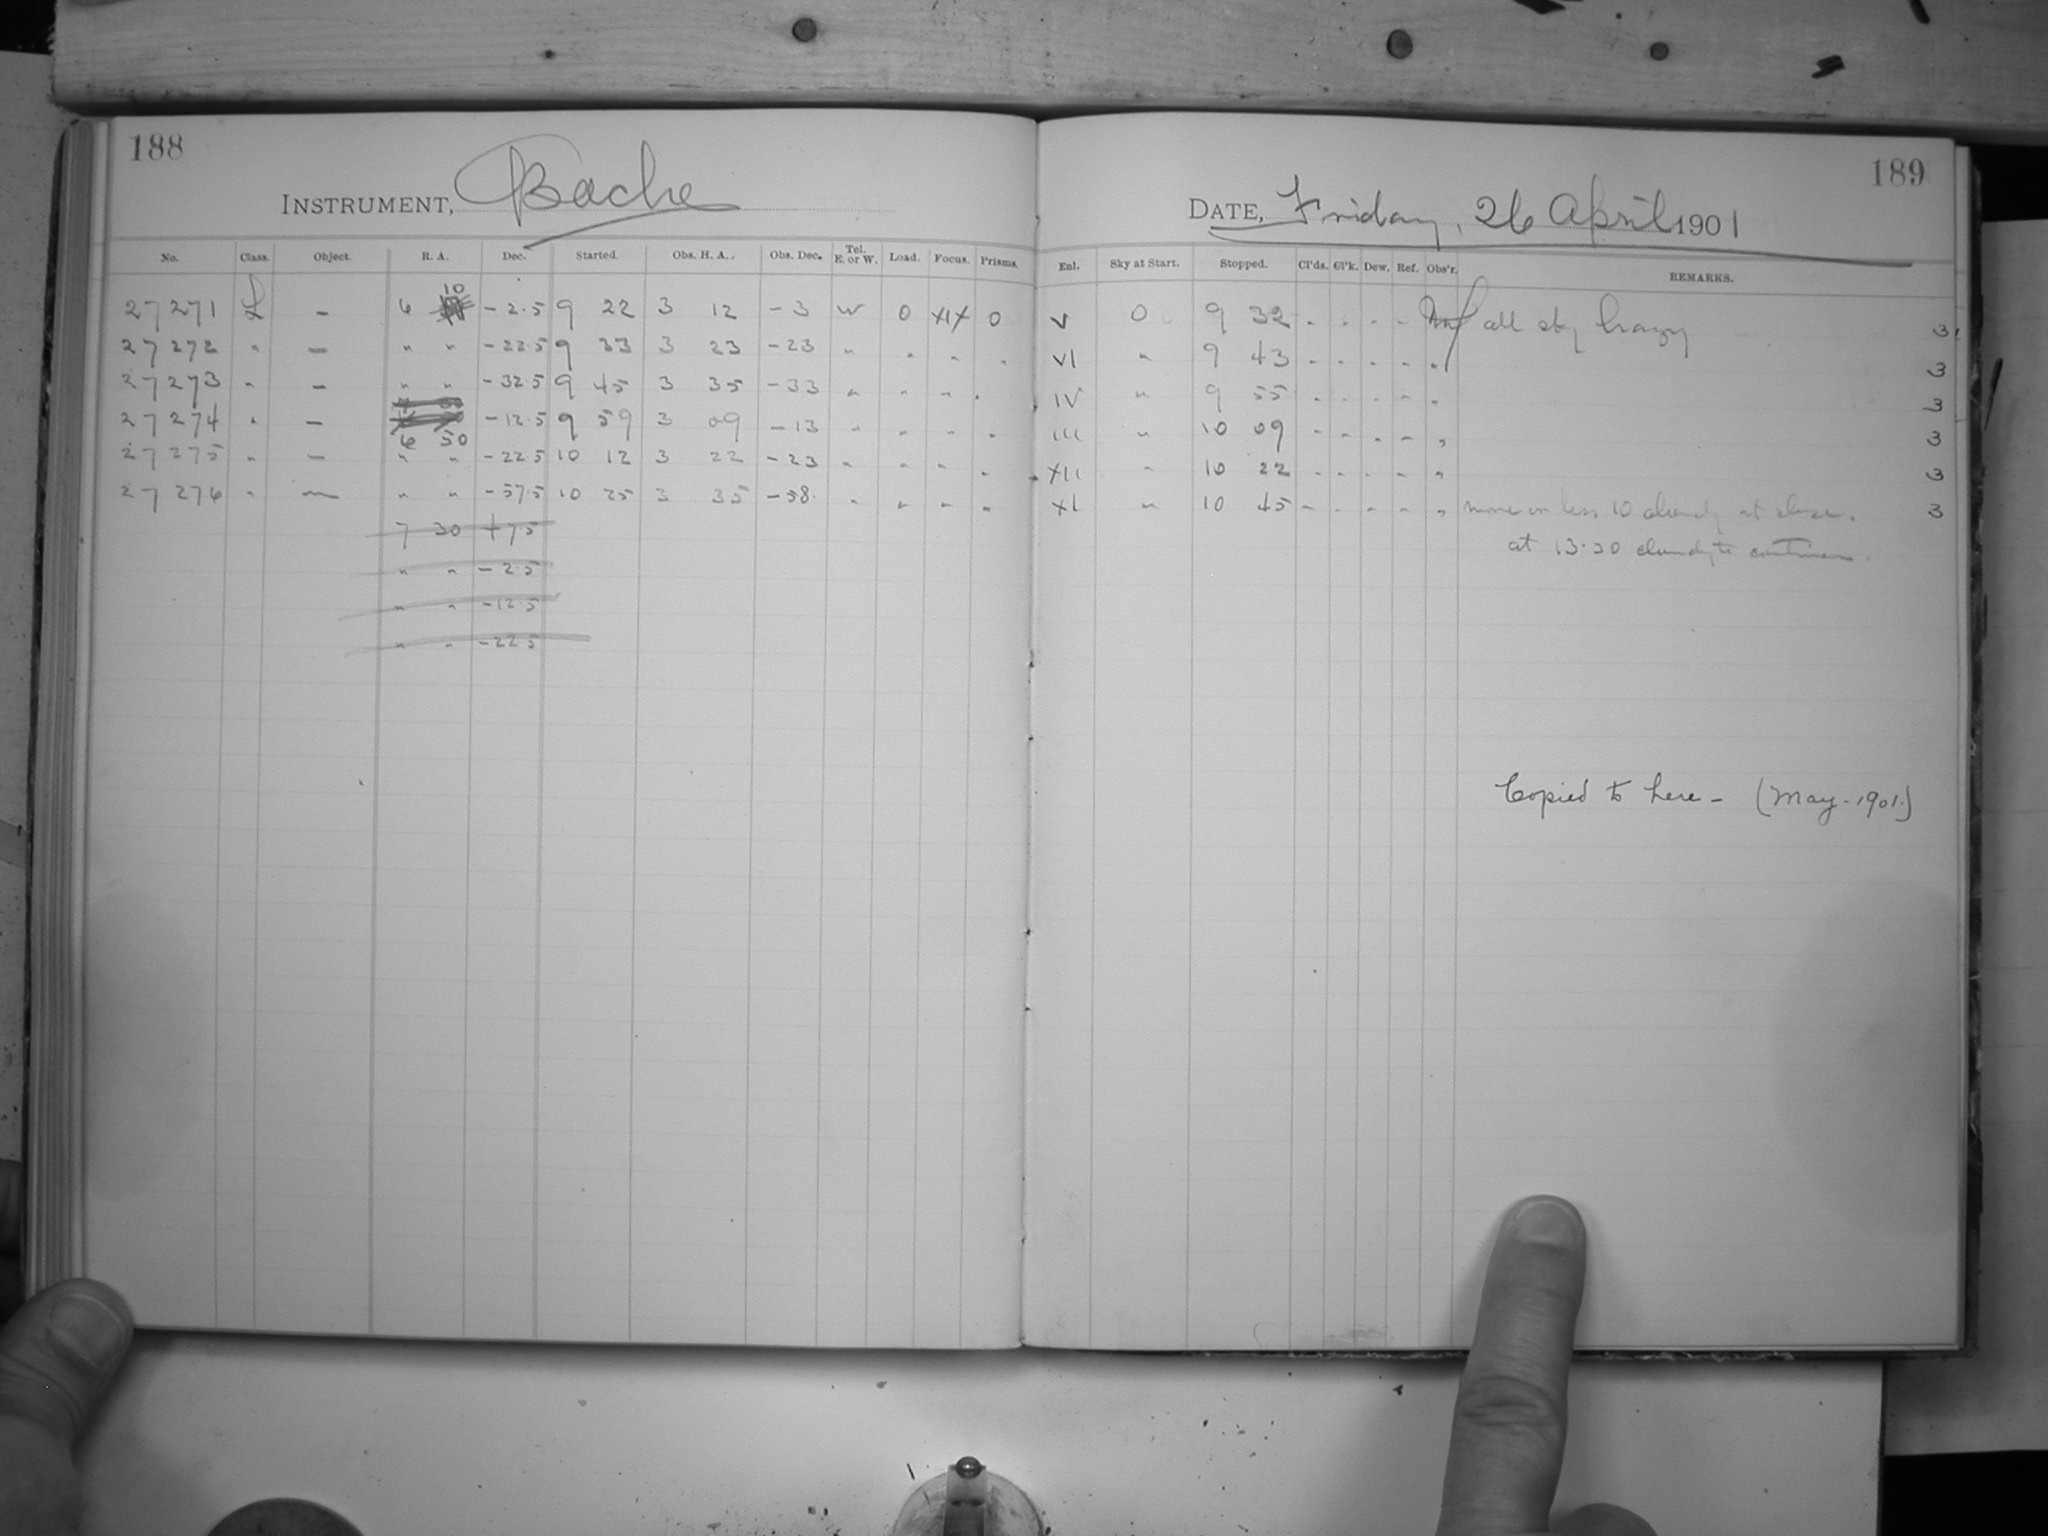 188
INSTRUMENT, Bache
No. Class. Object. R. A. Dec. Started. Obs. H. A. Obs. Dec. Tel. E. or W. Load. Focus. Prisms.
10
27 271 L - 6 - 2.5 9 22 3 12 - 3 W 0 XIX 0
27 272 " - " " - 22.5 9 33 3 23 - 23 " " " "
27 273 " - " " - 32.5 9 45 3 35 - 33 " " " "
27 274 " - 6 50 - 12.5 9 59 3 09 - 13 " " " "
27 275 " - " " - 22.5 10 12 3 22 - 23 " " " "
27 276 " - " " - 57.5 10 25 3 35 - 58. " " " "
7 30 + 7.5
" " - 2.5
" " - 12.5
" " - 22.5
189
DATE, Friday, 26 April 1901
Enl. Sky at Start. Stopped. Cl'ds. Cl'k. Dew. Ref. Obs'r. REMARKS.
V 0 9 32 - - - - all sky hazy 3
VI " 9 43 - - - - " 3
IV " 9 55 - - - - " 3
III " 10 09 - - - - " 3
XII " 10 22 - - - - " 3
XI " 10 45 - - - - " more or less 10 cloudy at close. 3
at 13.20 cloudy to continue
Copied to here - (May - 1901.)